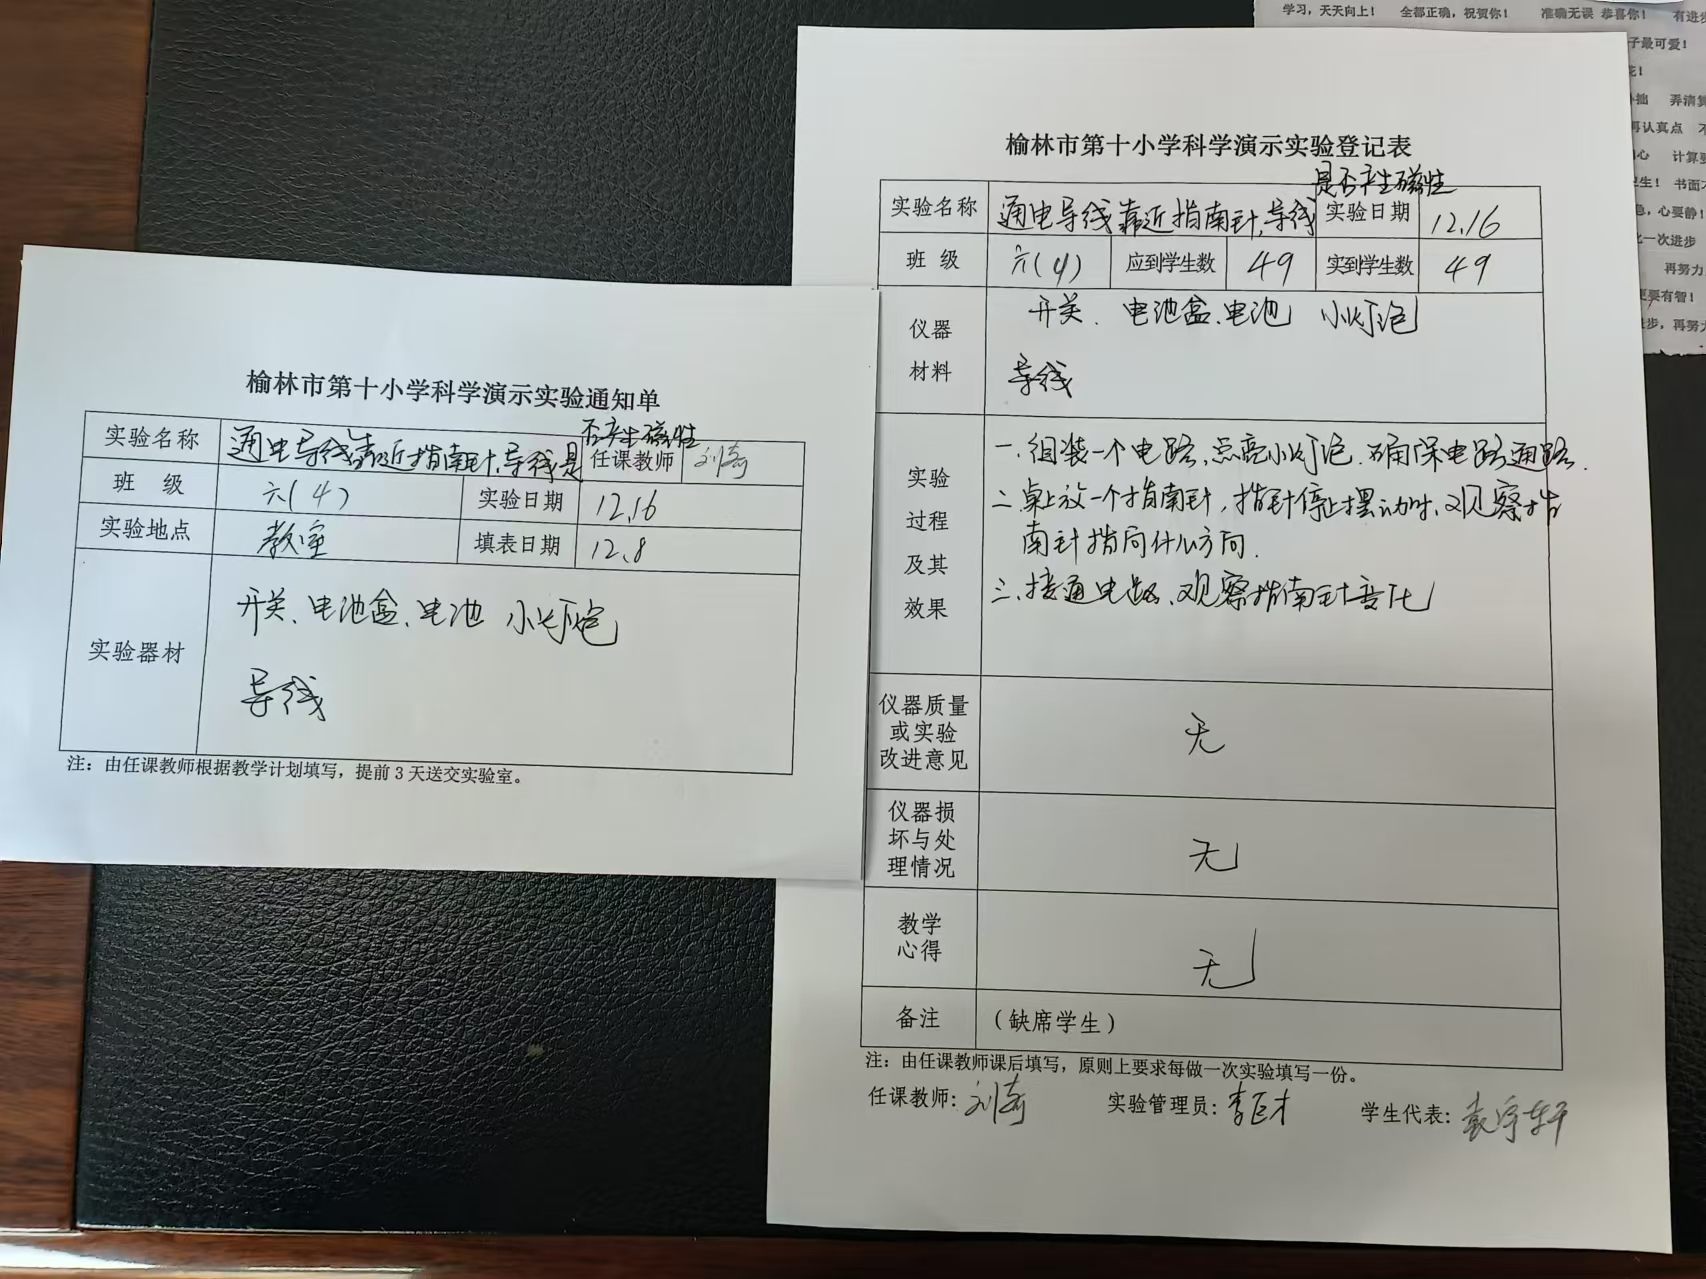 学习，天天向上！ 全都正确，祝贺你！ 准确无误 恭喜你！ 有进步
子最可爱！
花！
补拙 弄清算
再认真点 不
心 计算要
卫生！ 书面不
急，心要静！
比一次进步
再努力
更要有智！
进步，再努力
榆林市第十小学科学演示实验通知单
实验名称 通电导线靠近指南针，导线是否产生磁性 任课教师 刘奇
班 级 六(4) 实验日期 12.16
实验地点 教室 填表日期 12.8
实验器材 开关、电池盒、电池 小灯泡
导线
注：由任课教师根据教学计划填写，提前3天送交实验室。
榆林市第十小学科学演示实验登记表
实验名称 通电导线靠近指南针，导线是否产生磁性 实验日期 12.16
班 级 六(4) 应到学生数 49 实到学生数 49
仪器材料 开关、电池盒、电池 小灯泡
导线
实验过程及其效果 一.组装一个电路、点亮小灯泡.确保电路通路.
二.桌上放一个指南针，指针停止摆动时、观察指
南针指向什么方向.
三.接通电路、观察指南针变化
仪器质量或实验改进意见 无
仪器损坏与处理情况 无
教学心得 无
备注 （缺席学生）
注：由任课教师课后填写，原则上要求每做一次实验填写一份。
任课教师：刘奇 实验管理员： 学生代表：袁宇轩